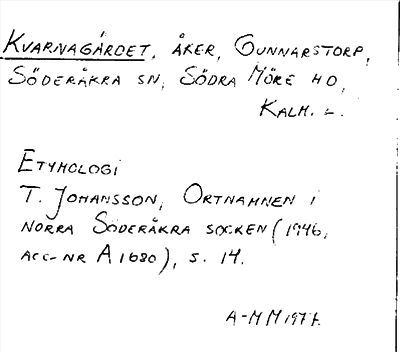 KVARNAGÄRDET, ÅKER, GUNNARSTORP,
SÖDERÅKRA SN, SÖDRA MÖRE HD,
KALM. L.
ETYMOLOGI
T. JOHANSSON, ORTNAMNEN I
NORRA SÖDERÅKRA SOCKEN (1946,
ACC-NR A1680), S. 14.
A-M M 1977.